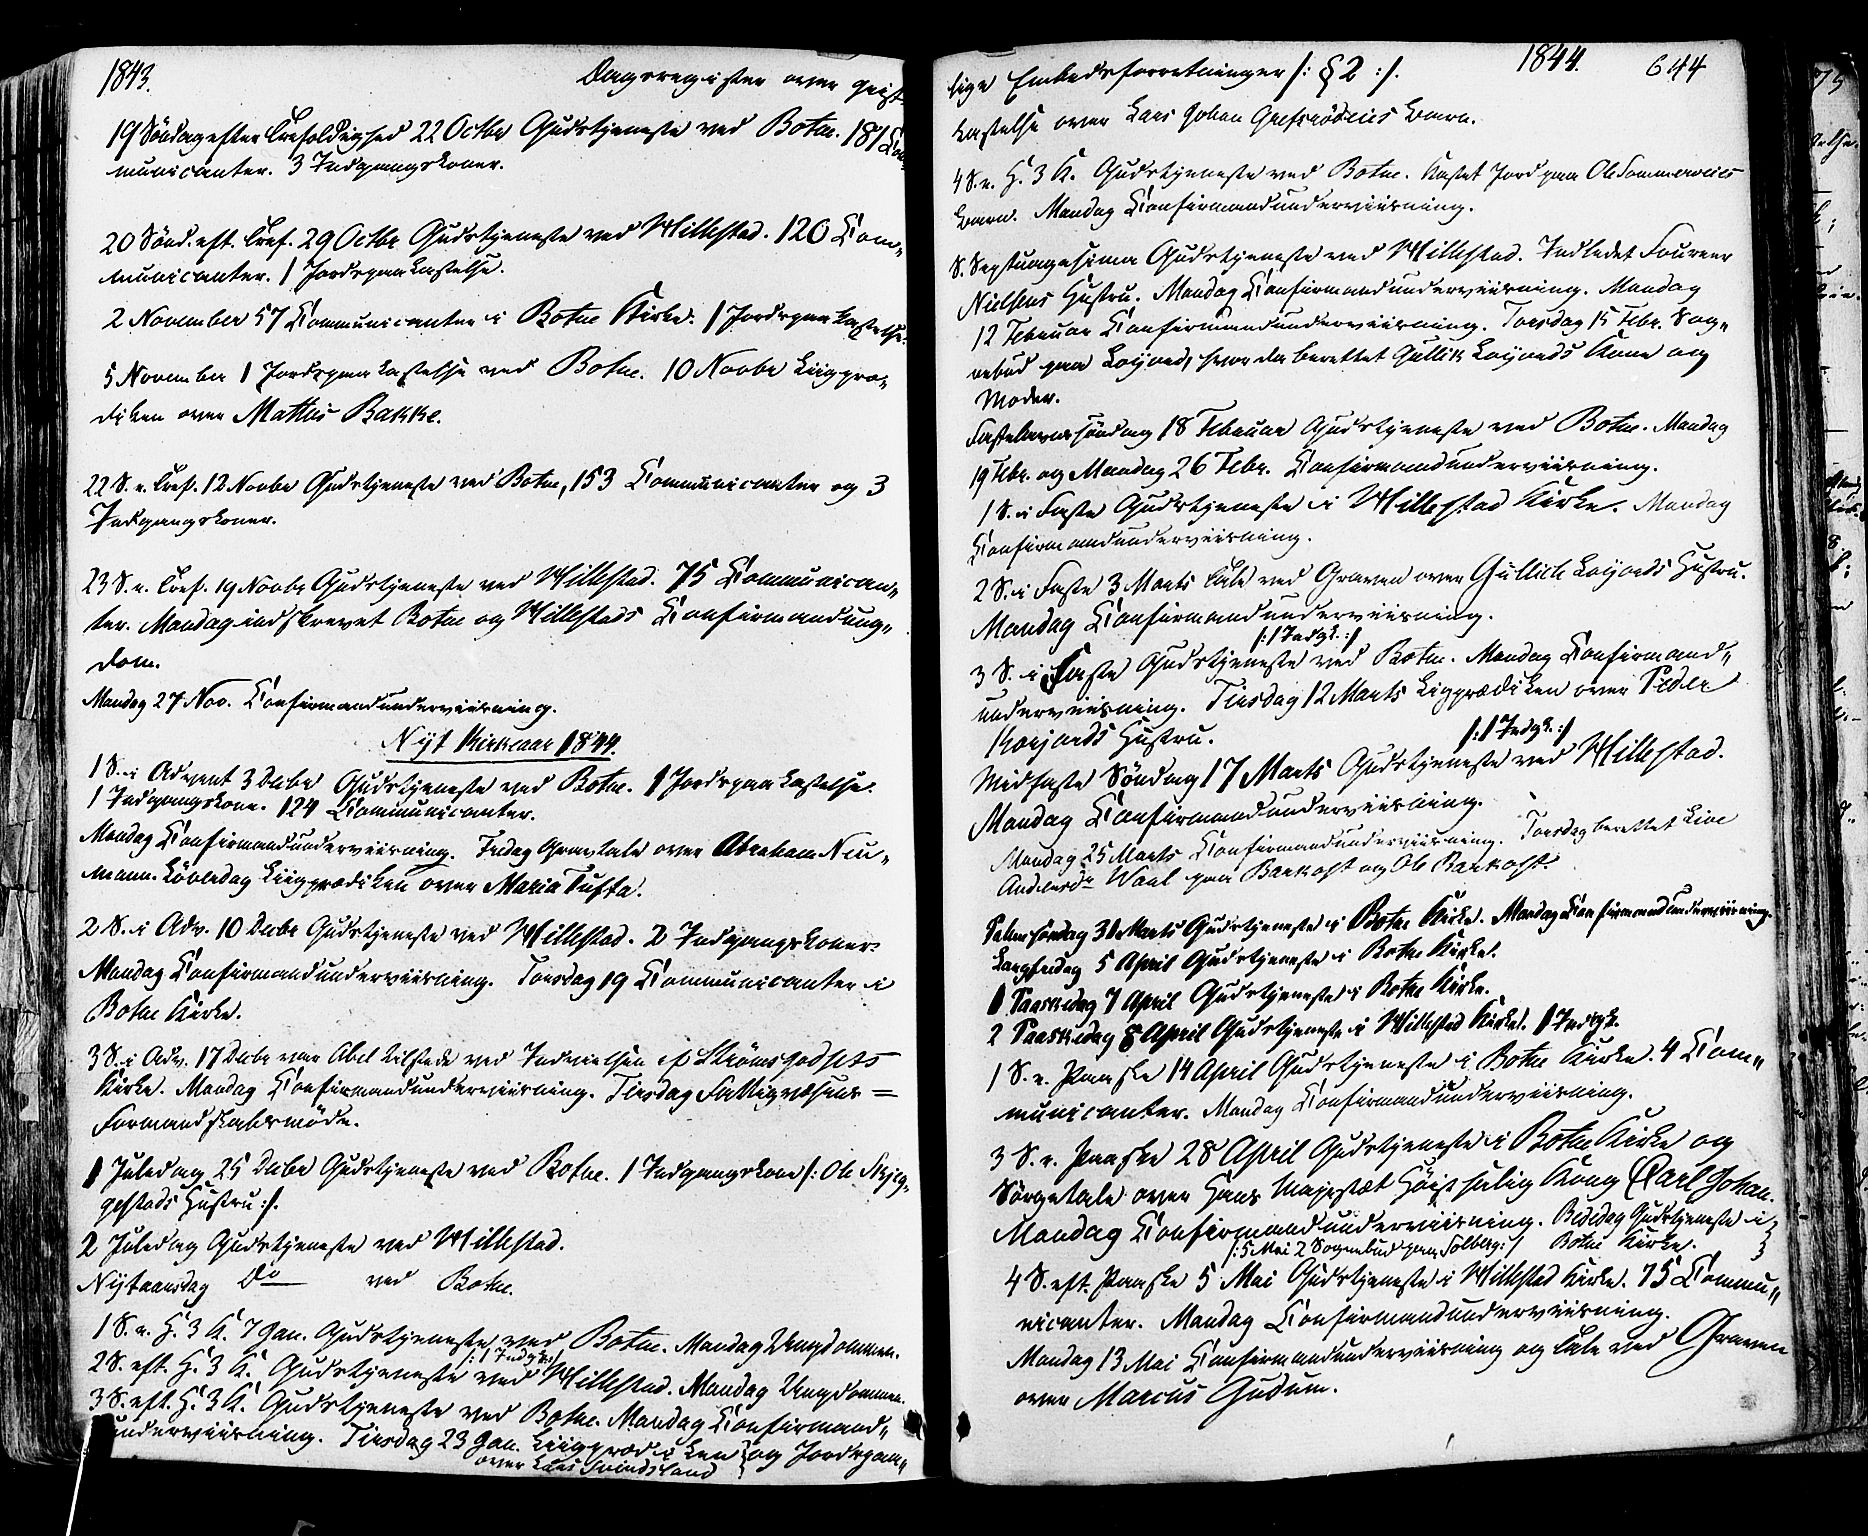 1843.
Dagsregister over geist
19 Søndag efter Trefoldighed 22 Octbr Gudstjeneste ved Botne. 181 Com
municanter. 3 Indgangskoner.
20 Sönd. eft. Tref. 29 Octbr. Gudstjeneste ved Hillestad. 120 Com„
municanter. 1 Jordspaakastelse.
2 November 57 Communicanter i Botne Kirke. 1 Jordspaakastelse.
5 November 1 Jordspaakastelse ved Botne. 10 Novbr Liigpræ„
diken over Mathis Bakke.
22 S. e. Tref. 12 Novbr Gudstjeneste ved Botne, 153 Communicanter og 3
Indgangskoner.
23 S. e. Tref. 19 Novbr Gudstjeneste ved Hillestad. 75 Communican„
ter. Mandag indskrevet Botne og Hillestads Confirmandung„
dom.
Mandag 27 Nov. Confirmandunderviisning.
Nyt Kirkeaar 1844.
1 S. i Advent 3 Decbr Gudstjeneste ved Botne. 1 Jordspaakastelse.
1 Indgangskone. 124 Communicanter.
Mandag Confirmandunderviisning. Fredag Gravtale over Abraham Neu„
mann. Löverdag Liigprædiken over Maria Tufta.
2 S. i Adv. 10 Decbr Gudstjeneste ved Hillestad. 2 Indgangskoner.
Mandag Confirmandunderviisning. Torsdag 19 Communicanter i
Botne Kirke.
3 S. i Adv. 17 Decbr var Abel tilstede ved Indvielsen af Strömsgodsets
Kirke. Mandag Confirmandunderviisning. Tirsdag Fattigvæsens=
Formandskabsmöde.
1 Juledag 25 Decbr Gudstjeneste ved Botne. 1 Indgangskone /: Ole Skjeg„
gestads Hustru :/.
2 Juledag Gudstjeneste ved Hillestad.
Nytaarsdag Do ved Botne.
1 S. e. H. 3 K. 7 Jan. Gudstjeneste ved Botne. Mandag Ungdommen.
/: 1 Indgk :/
2 S. eft. H. 3 K. Gudstjeneste ved Hillestad. Mandag Ungdommen.
3 S. eft. H. 3 K. Gudstjeneste ved Botne. Mandag Confirmand„
underviisning. Tirsdag 23 Jan. Liigprædiken og Jordspaa„
over Lars Svindsland
1844. 644
lige Embedsforretninger /: § 2 :/.
kastelse over Lars Johan Grefsrödeies Barn.
4 S. e. H. 3 K. Gudstjeneste ved Botne. Kastet Jord paa Ole Sommereies
Barn. Mandag Confirmandunderviisning.
S. Septuagesima Gudstjeneste ved Hillestad. Indledet Foureer
Nielsens Hustru. Mandag Confirmandunderviisning. Mandag
12 Februar Confirmandunderviisning. Torsdag 15 Febr. Sog„
nebud paa Löjord, hvor da berettet Gullik Löjords Kone og
Moder.
Fastelavnssöndag 18 Februar Gudstjeneste ved Botne. Mandag
19 Febr. og Mandag 26 Febr. Confirmandunderviisning.
1 S. i Faste Gudstjeneste i Hillestad Kirke. Mandag
Confirmandunderviisning.
2 S. i Faste 3 Marts Tale ved Graven over Gullich Löjords Hustru.
Mandag Confirmandunderviisning.
/: 1 Indgk. :/
3 S. i Faste Gudstjeneste ved Botne. Mandag Confirmand„
underviisning. Tirsdag 12 Marts Ligprædiken over Peder
Hustru.
/: 1 Indgk. :/
Midfaste Söndag 17 Marts Gudstjeneste ved Hillestad.
Mandag Confirmandunderviisning.
Mandag 25 Marts Confirmandunderviisning. Torsdag berettet Live
Andersdr paa og Ole
Palmesöndag 31 Marts Gudstjeneste i Botne Kirke. Mandag Confirmandunderviisning.
Langfredag 5 April Gudstjeneste i Botne Kirke.
1 Paaskedag 7 April Gudstjeneste i Botne Kirke.
2 Paaskedag 8 April Gudstjeneste i Hillestad Kirke. 1 Indgk.
1 S. e. Paaske 14 April Gudstjeneste i Botne Kirke. 4 Com„
municanter. Mandag Confirmandunderviisning.
3 S. e. Paaske 28 April Gudstjeneste i Botne Kirke og
Sörgetale over Hans Majestæt Höist salig Kong Carl Johan.
Mandag Confirmandunderviisning. Bededag Gudstjeneste i
Botne Kirke.
/: 5 Mai 2 Sognebud paa Solberg :/
4 S. eft. Paaske 5 Mai Gudstjeneste i Hillestad Kirke. 75 Commu„
nicanter. Mandag Confirmandunderviisning.
Mandag 13 Mai Confirmandunderviisning og Tale ved Graven
over Marcus Gudum.